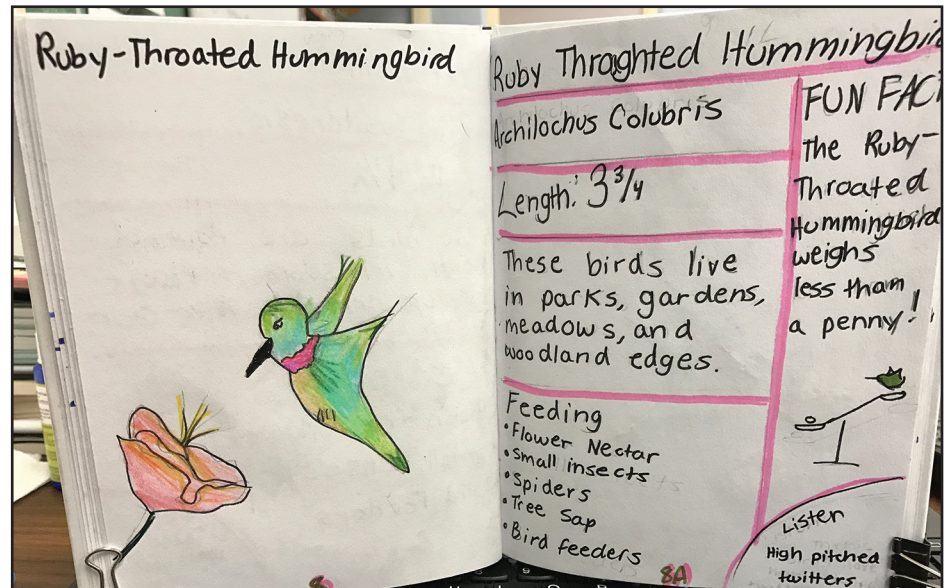 Ruby-Throated Hummingbird
8
Ruby Throghted Hummingbir
Archilochus Colubris
Length: 3 3/4
These birds live
in parks, gardens,
meadows, and
woodland edges.
Feeding
•Flower Nectar
•Small insects
•Spiders
•Tree Sap
•Bird feeders
8A
FUN FAC
The Ruby-
Throated
Hummingbird
weighs
less than
a penny!
Listen
High pitched
twitters